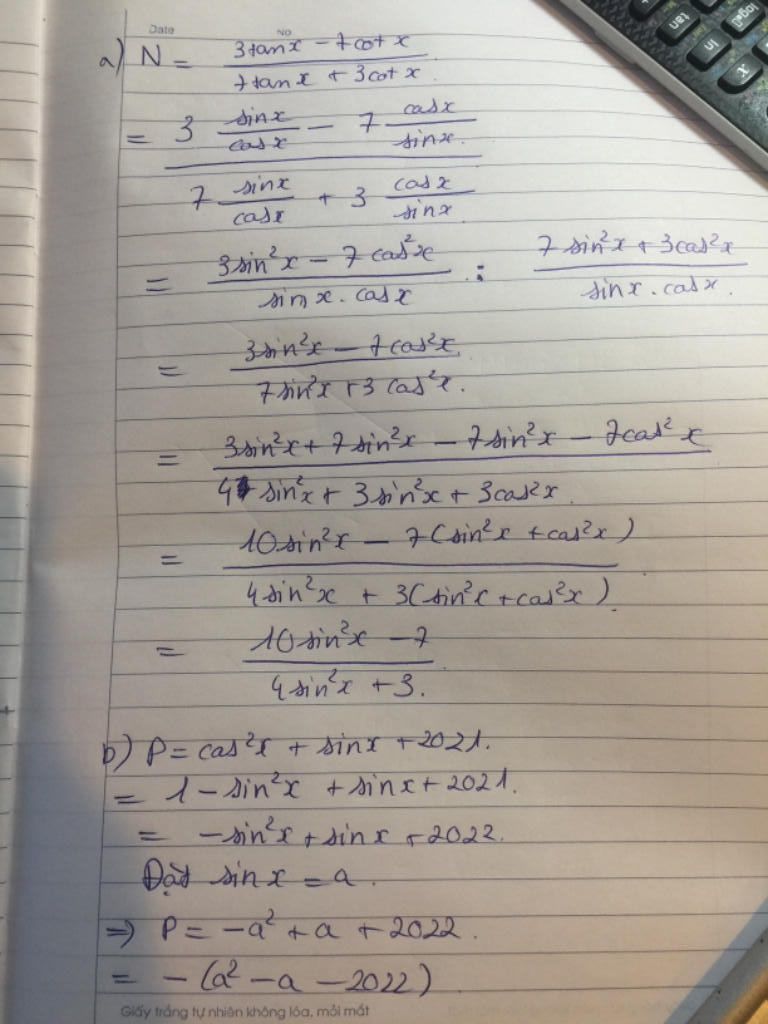 Date No.
a) N = (3tanx - 7cotx)/(7tanx + 3cotx)
= (3 sinx/cosx - 7 cosx/sinx)/(7 sinx/cosx + 3 cosx/sinx)
= (3sin²x - 7cos²x)/(sinx.cosx) : (7sin²x + 3cos²x)/(sinx.cosx)
= (3sin²x - 7cos²x)/(7sin²x + 3cos²x)
= (3sin²x + 7sin²x - 7sin²x - 7cos²x)/(4sin²x + 3sin²x + 3cos²x)
= (10sin²x - 7(sin²x + cos²x))/(4sin²x + 3(sin²x + cos²x))
= (10sin²x - 7)/(4sin²x + 3)
b) P = cos²x + sinx + 2021.
= 1 - sin²x + sinx + 2021.
= -sin²x + sinx + 2022.
Đặt sinx = a.
=> P = -a² + a + 2022.
= -(a² - a - 2022)
Giấy trắng tự nhiên không lóa, mỏi mắt
log
tan
ln